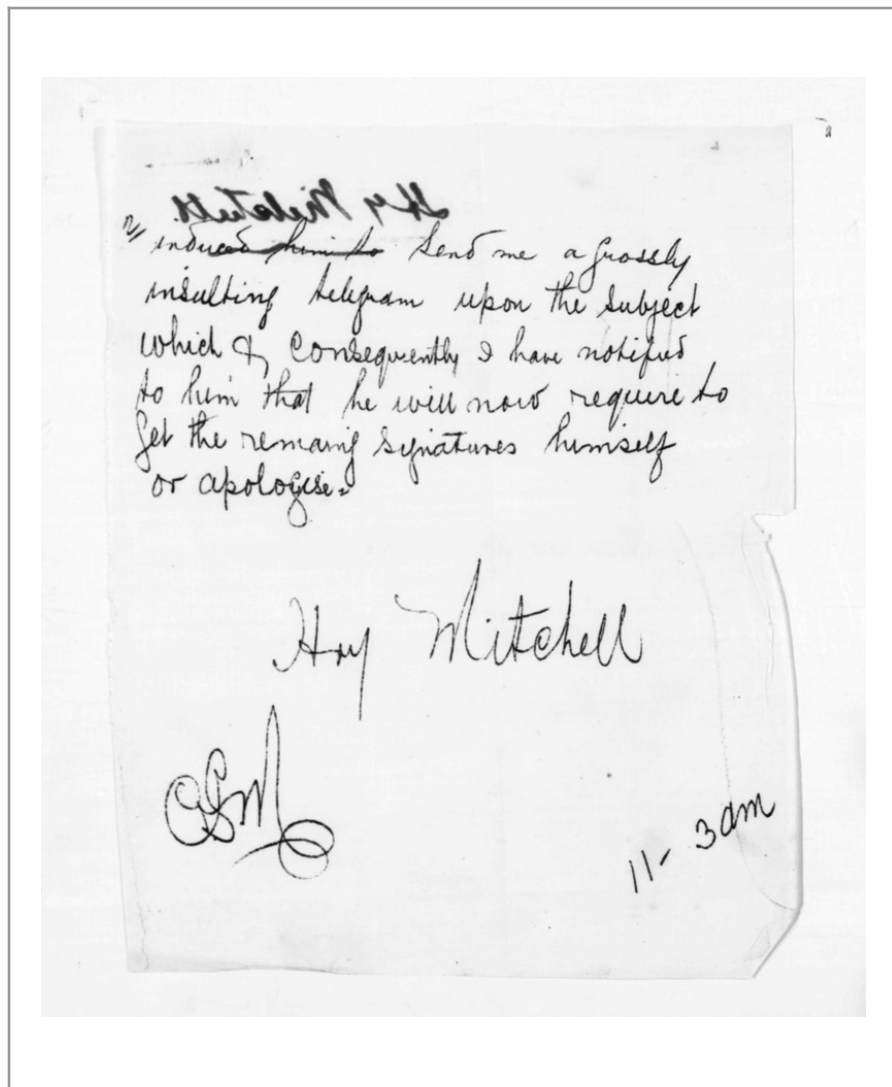 2/
induced him to send me a grossly
insulting telegram upon the subject
which & consequently I have notified
to him that he will now require to
get the remaing signatures himself
or apologise.
Hry Mitchell
11-3am